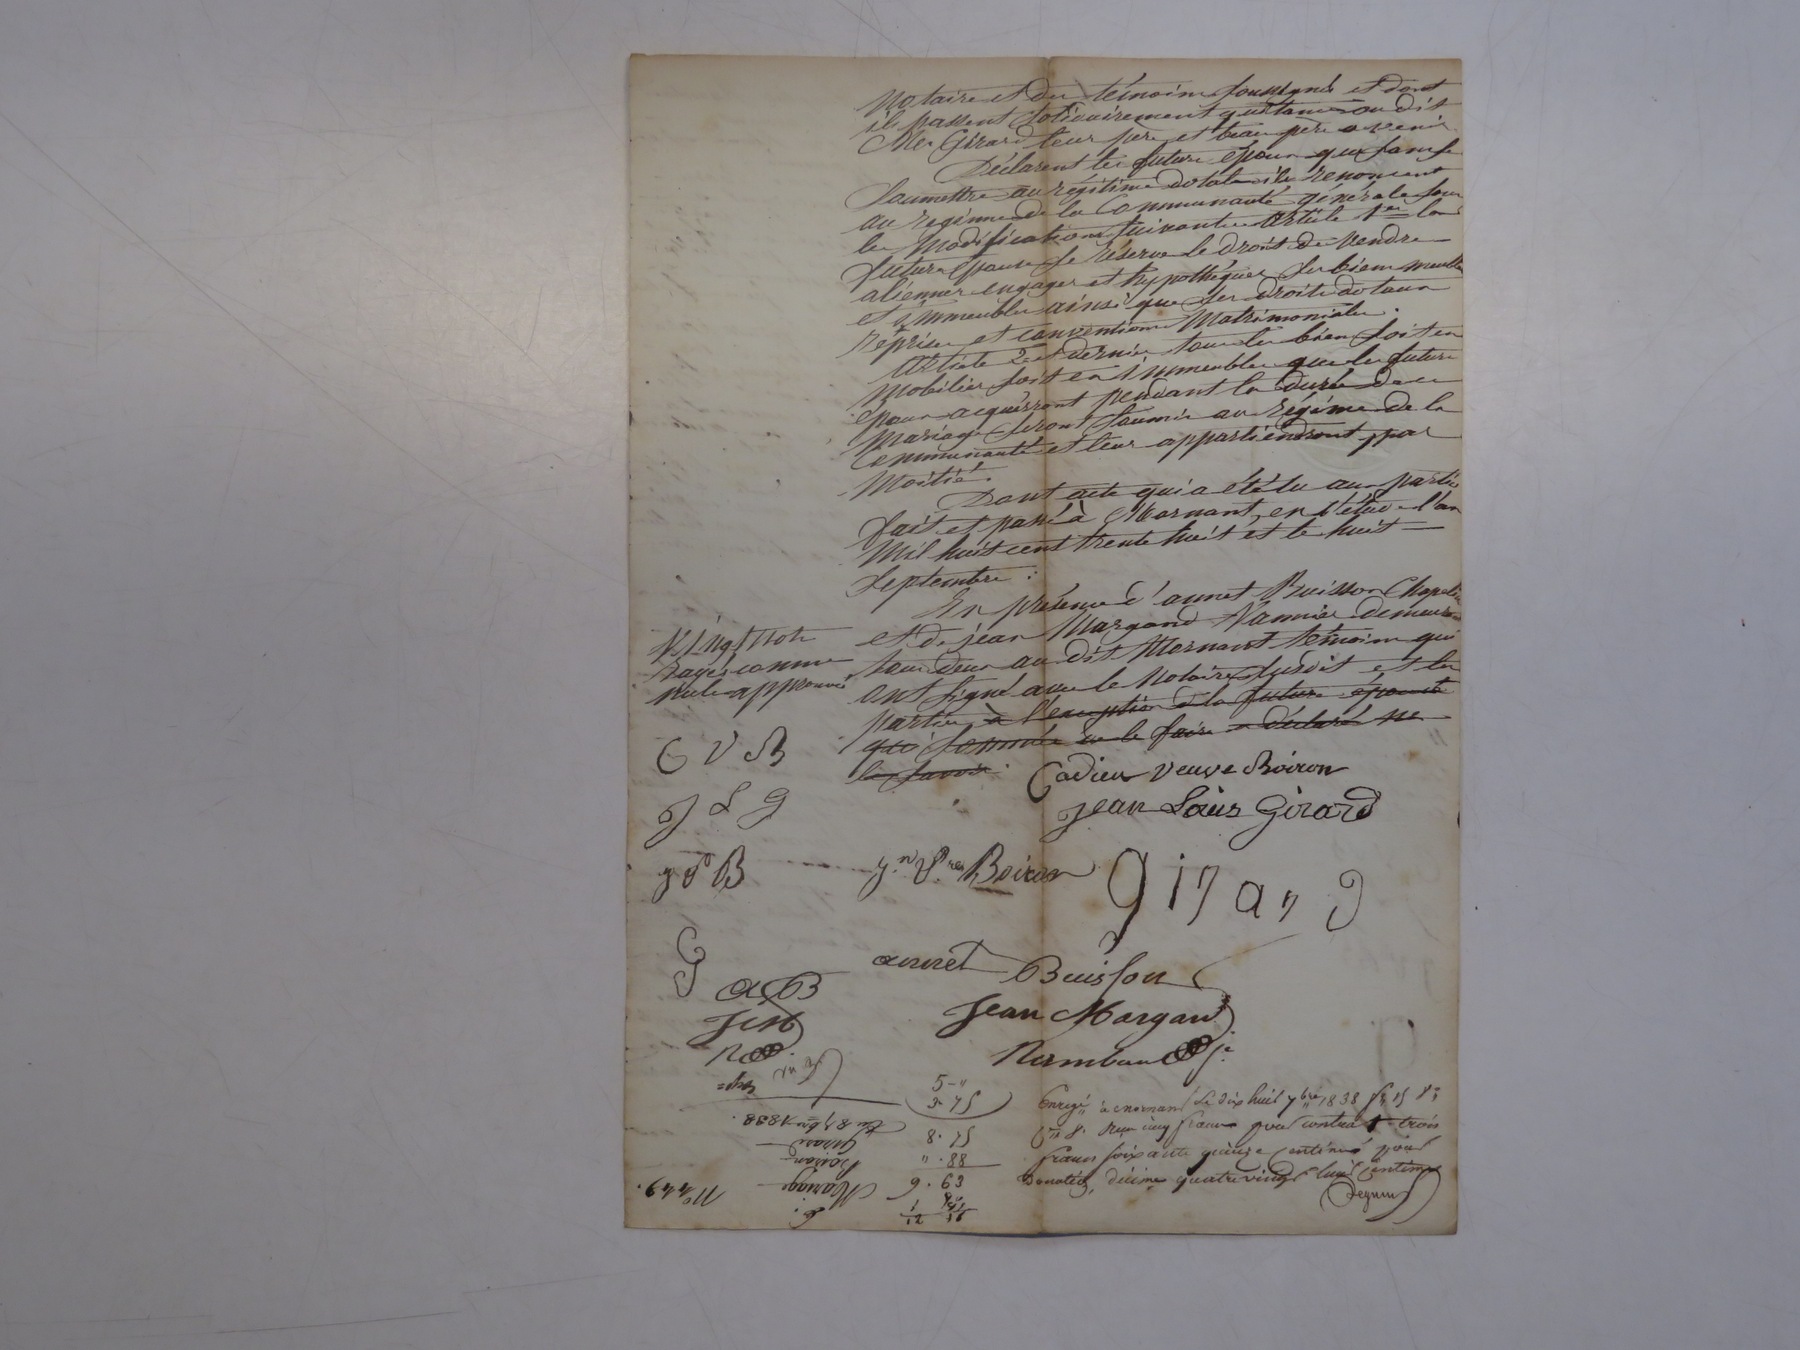 Notaire et des témoins soussignés et dont
ils passent solidairement quittance au dit
Mr Girard leur père et beau père a venir
Déclarent les futurs époux que sans se
soumettre au régime dotal ils renoncent
au régime de la Communauté générale sous
les modifications suivantes Article 1er la
future épouse se réserve le droit de vendre
alienner engager et hypothéquer ses biens meubles
et immeubles ainsi que ses droits dotaux
reprises et conventions Matrimoniales.
Article 2 et dernier tous les biens soit en
mobilier soit en immeubles que les futurs
époux acquerront pendant la durée de ce
Mariage seront soumis au régime de la
Communauté et leur appartiendront par
Moitié.
Dont acte qui a été lu aux parties
fait et passé à Mornant, en l'étude l'an
Mil huit cent trente huit et le huit
Septembre :
En présence d'annet Buisson Chapelier
et de jean Margand Vannier demeurant
tous deux au dit Mornant témoins qui
ont signé avec le Notaire susdit et les
parties à l'exception de la future épouse
qui sommée de le faire a déclaré ne
le savoir.
Vingt mots
rayés comme
nuls approuvés
C V B
Cadier veuve Boiron
J L G
Jean Louis Girard
j P B
Boiron
Girard
G
annet Buisson
A B
Jean Margand
J M
5-"
3-75
8.75
".88
9.63
Enregé à mornant le dix huit 7bre 1838 fo 15 Vo
Ces 8. Reçu cinq francs pour contrat trois
francs soixante quinze centimes pour
Donation, décime quatre vingt huit centimes
No 449.
Mariage
Boiron
Girard
Du 8 7bre 1838.